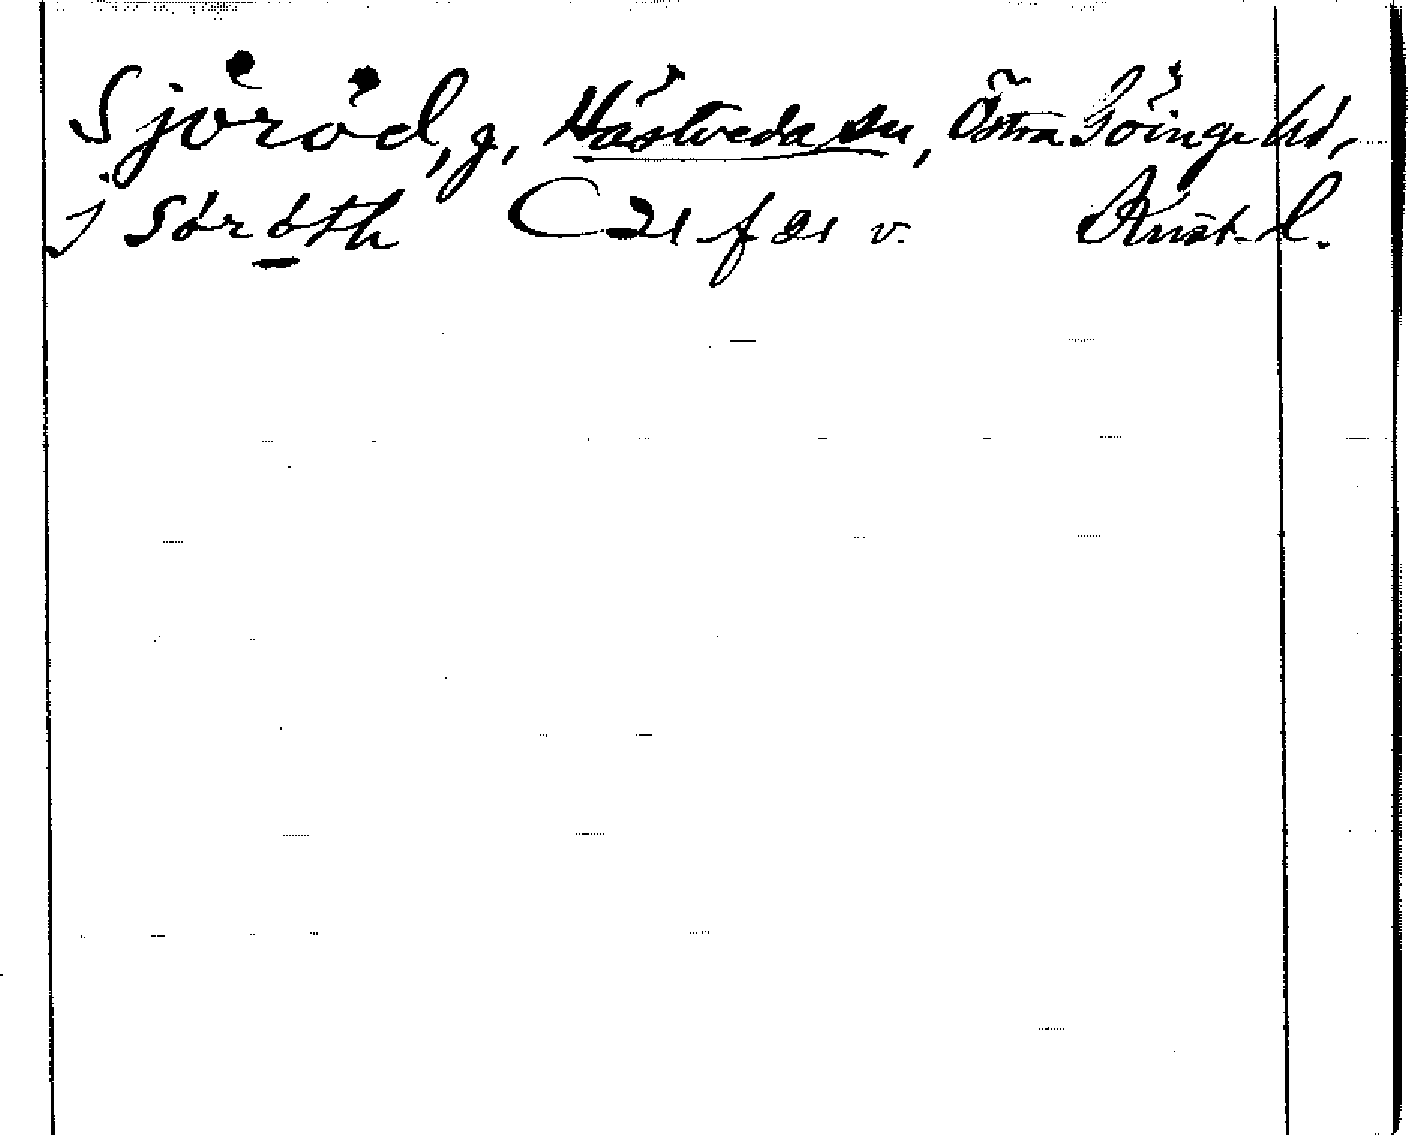 Sjöröd, g, Hästveda sn, Östra Göinge hd,
J Söröth C 21 f 21 v. Krist. l.